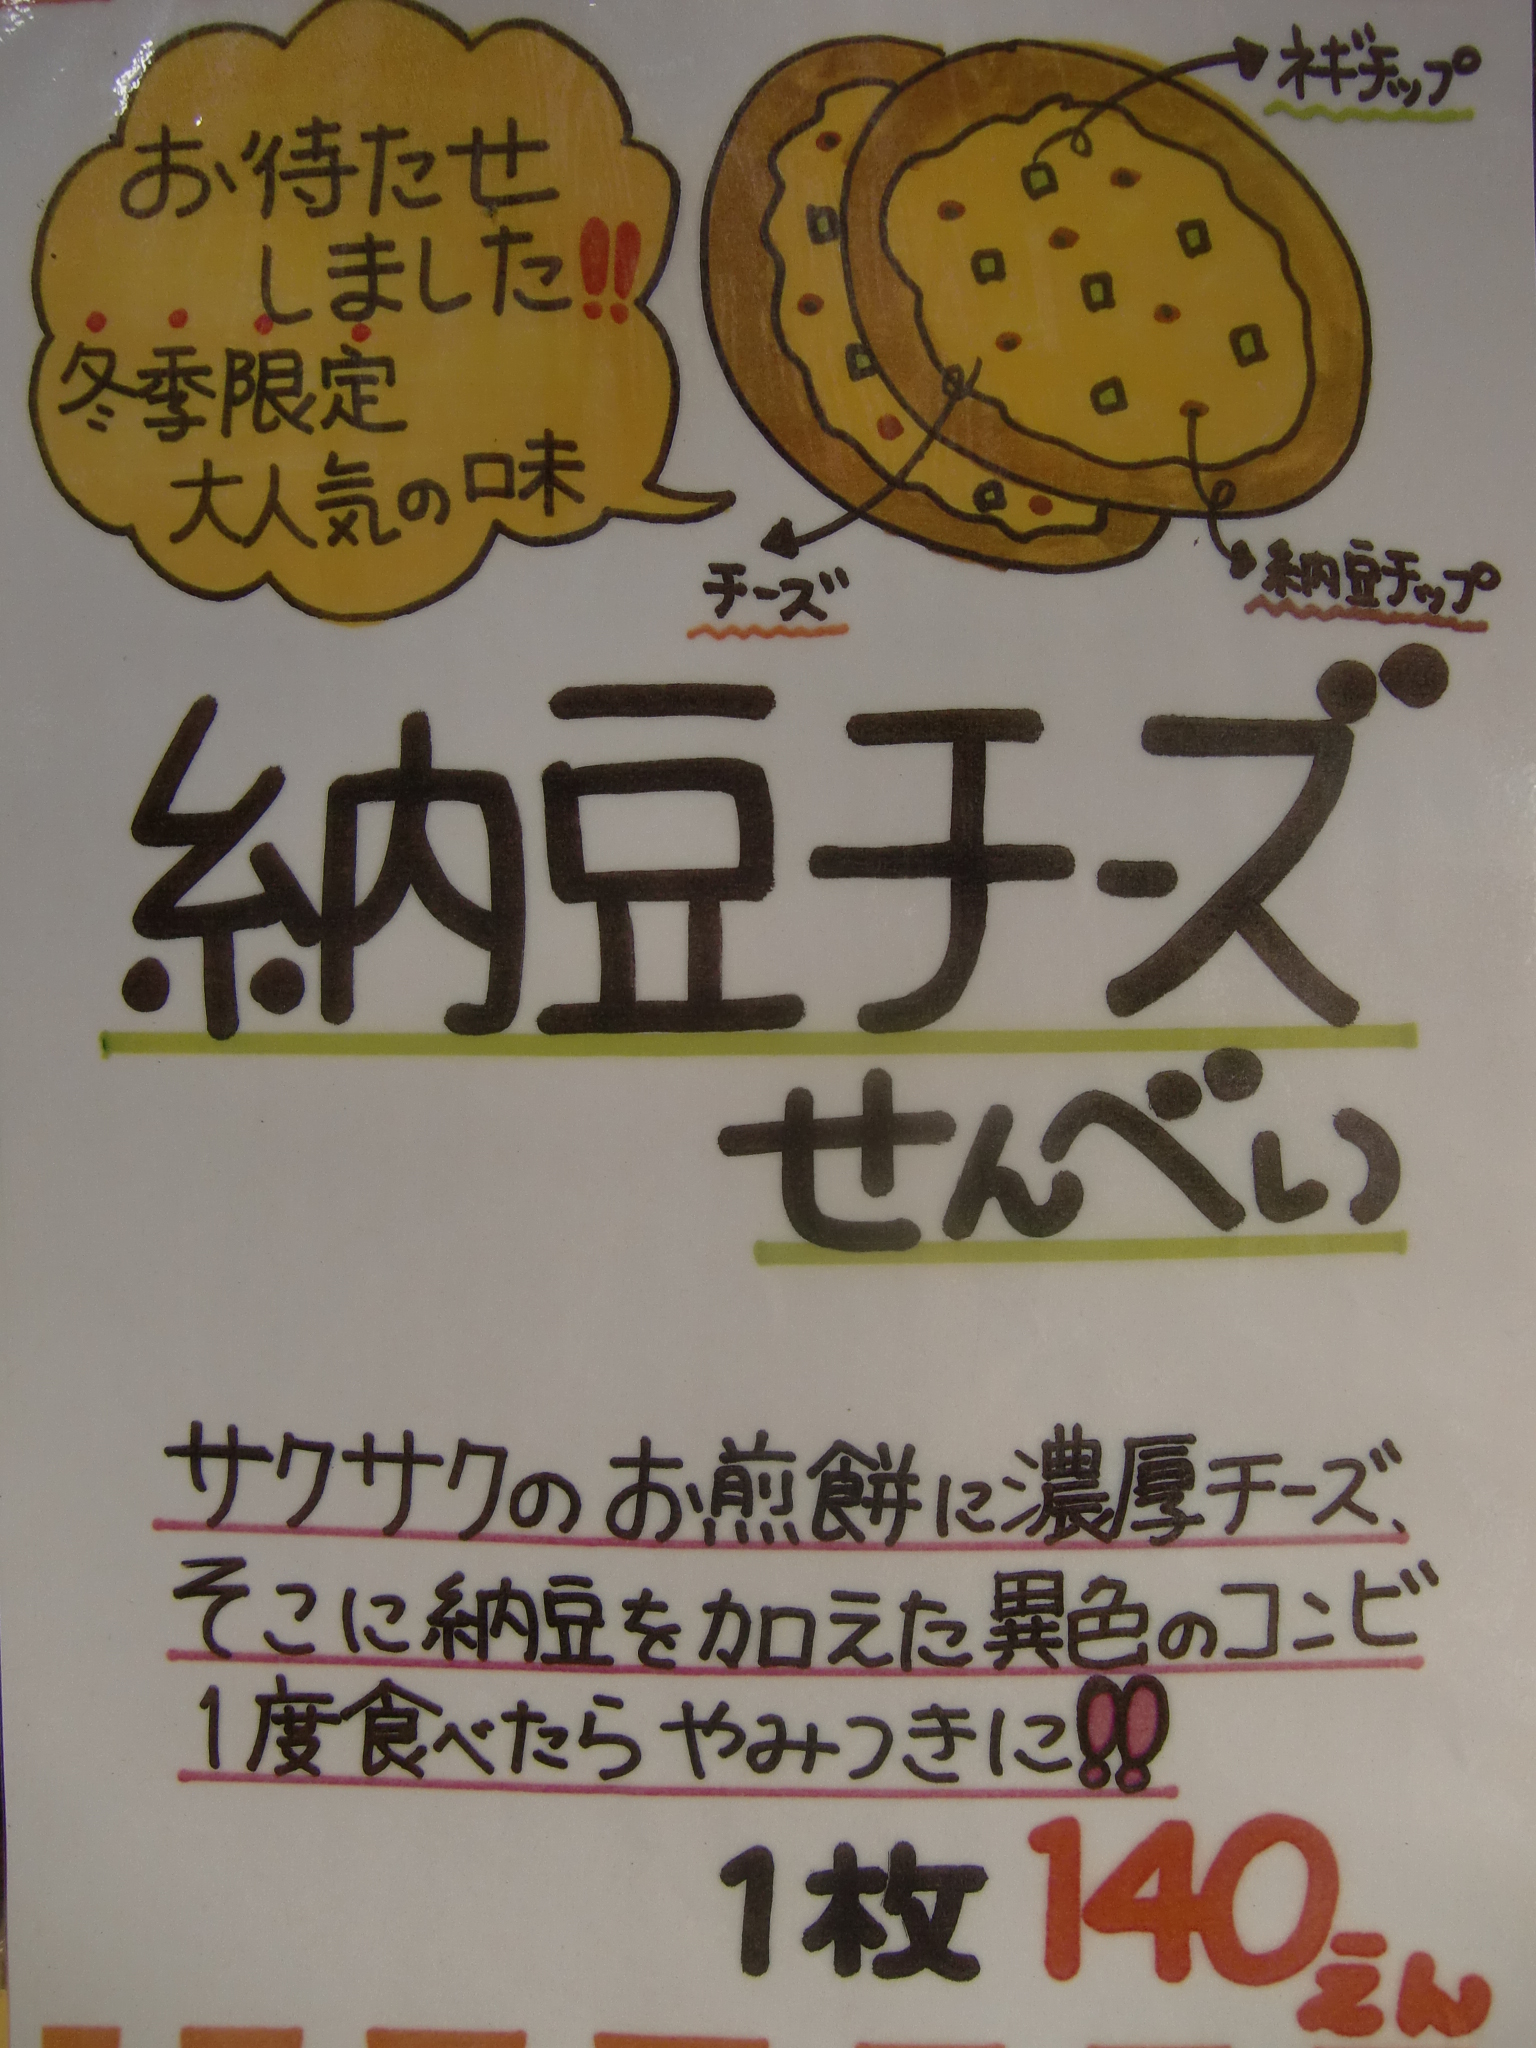 お待たせ
しました!!
冬季限定
大人気の味
ネギチップ
チーズ
納豆チップ
納豆チーズ
せんべい
サクサクのお煎餅に濃厚チーズ、
そこに納豆を加えた異色のコンビ
1度食べたらやみつきに!!
1枚 140えん